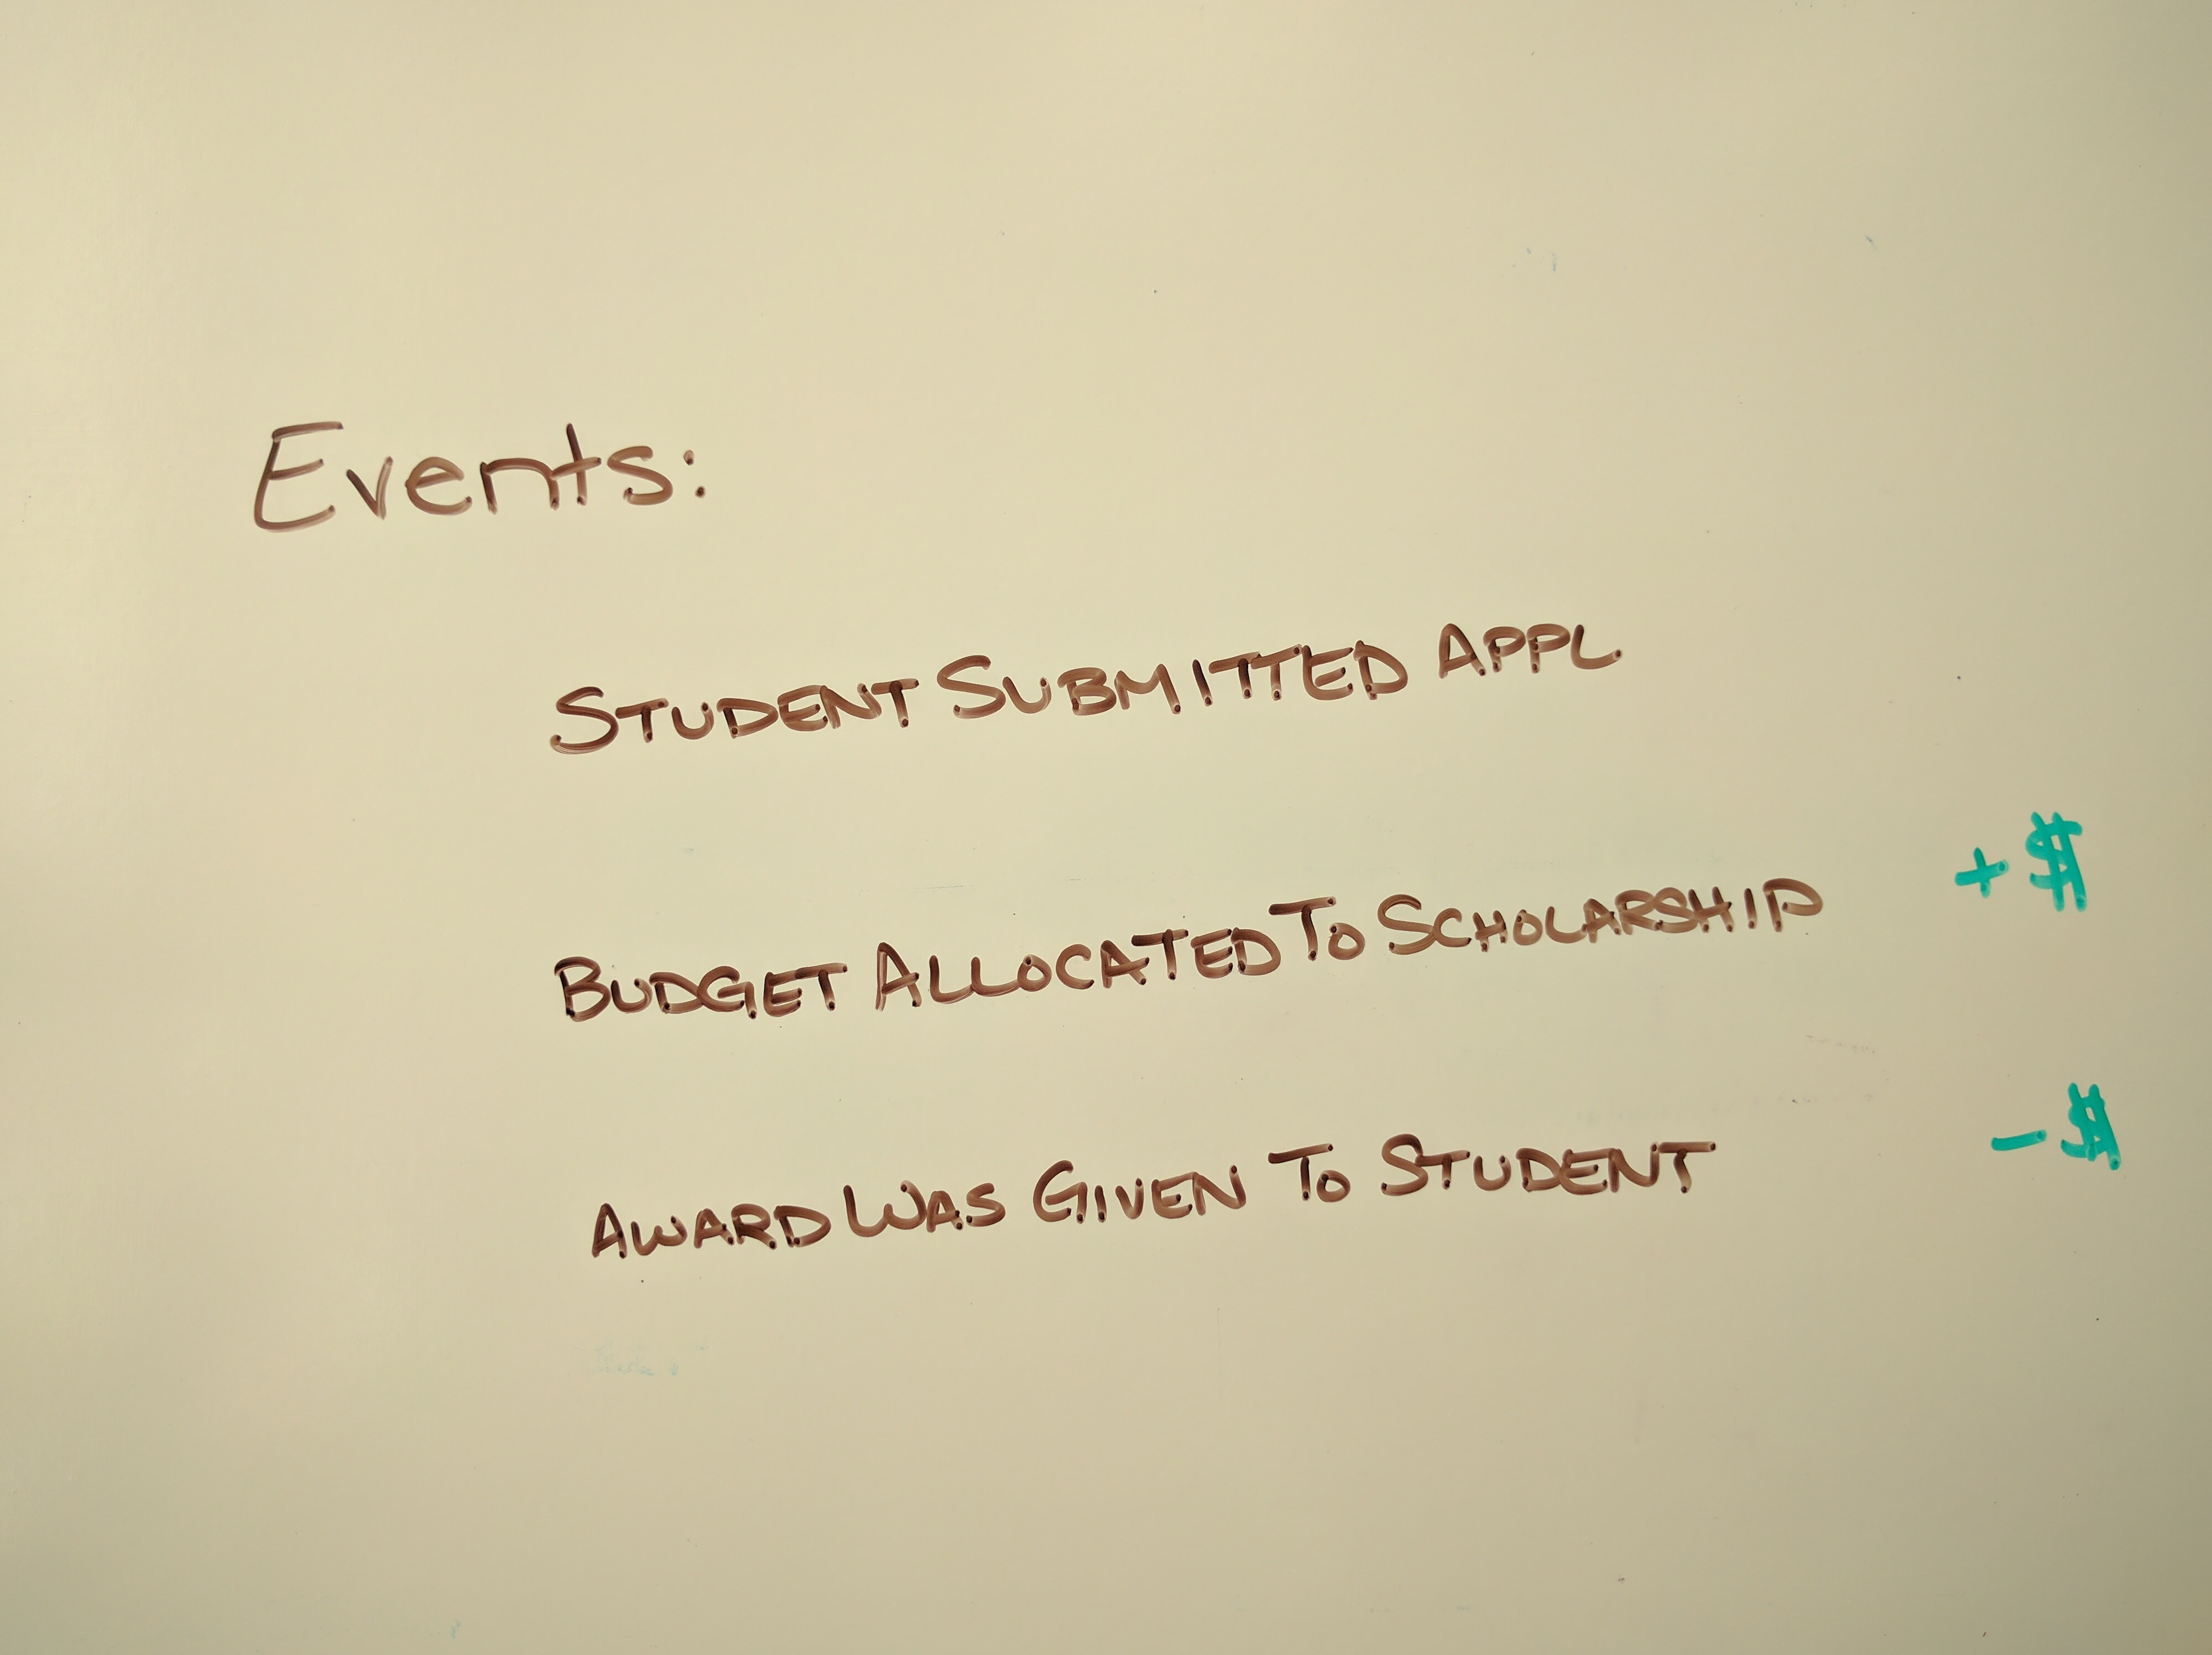 Events:
STUDENT SUBMITTED APPL
+$
BUDGET ALLOCATED TO SCHOLARSHIP
-$
AWARD WAS GIVEN TO STUDENT